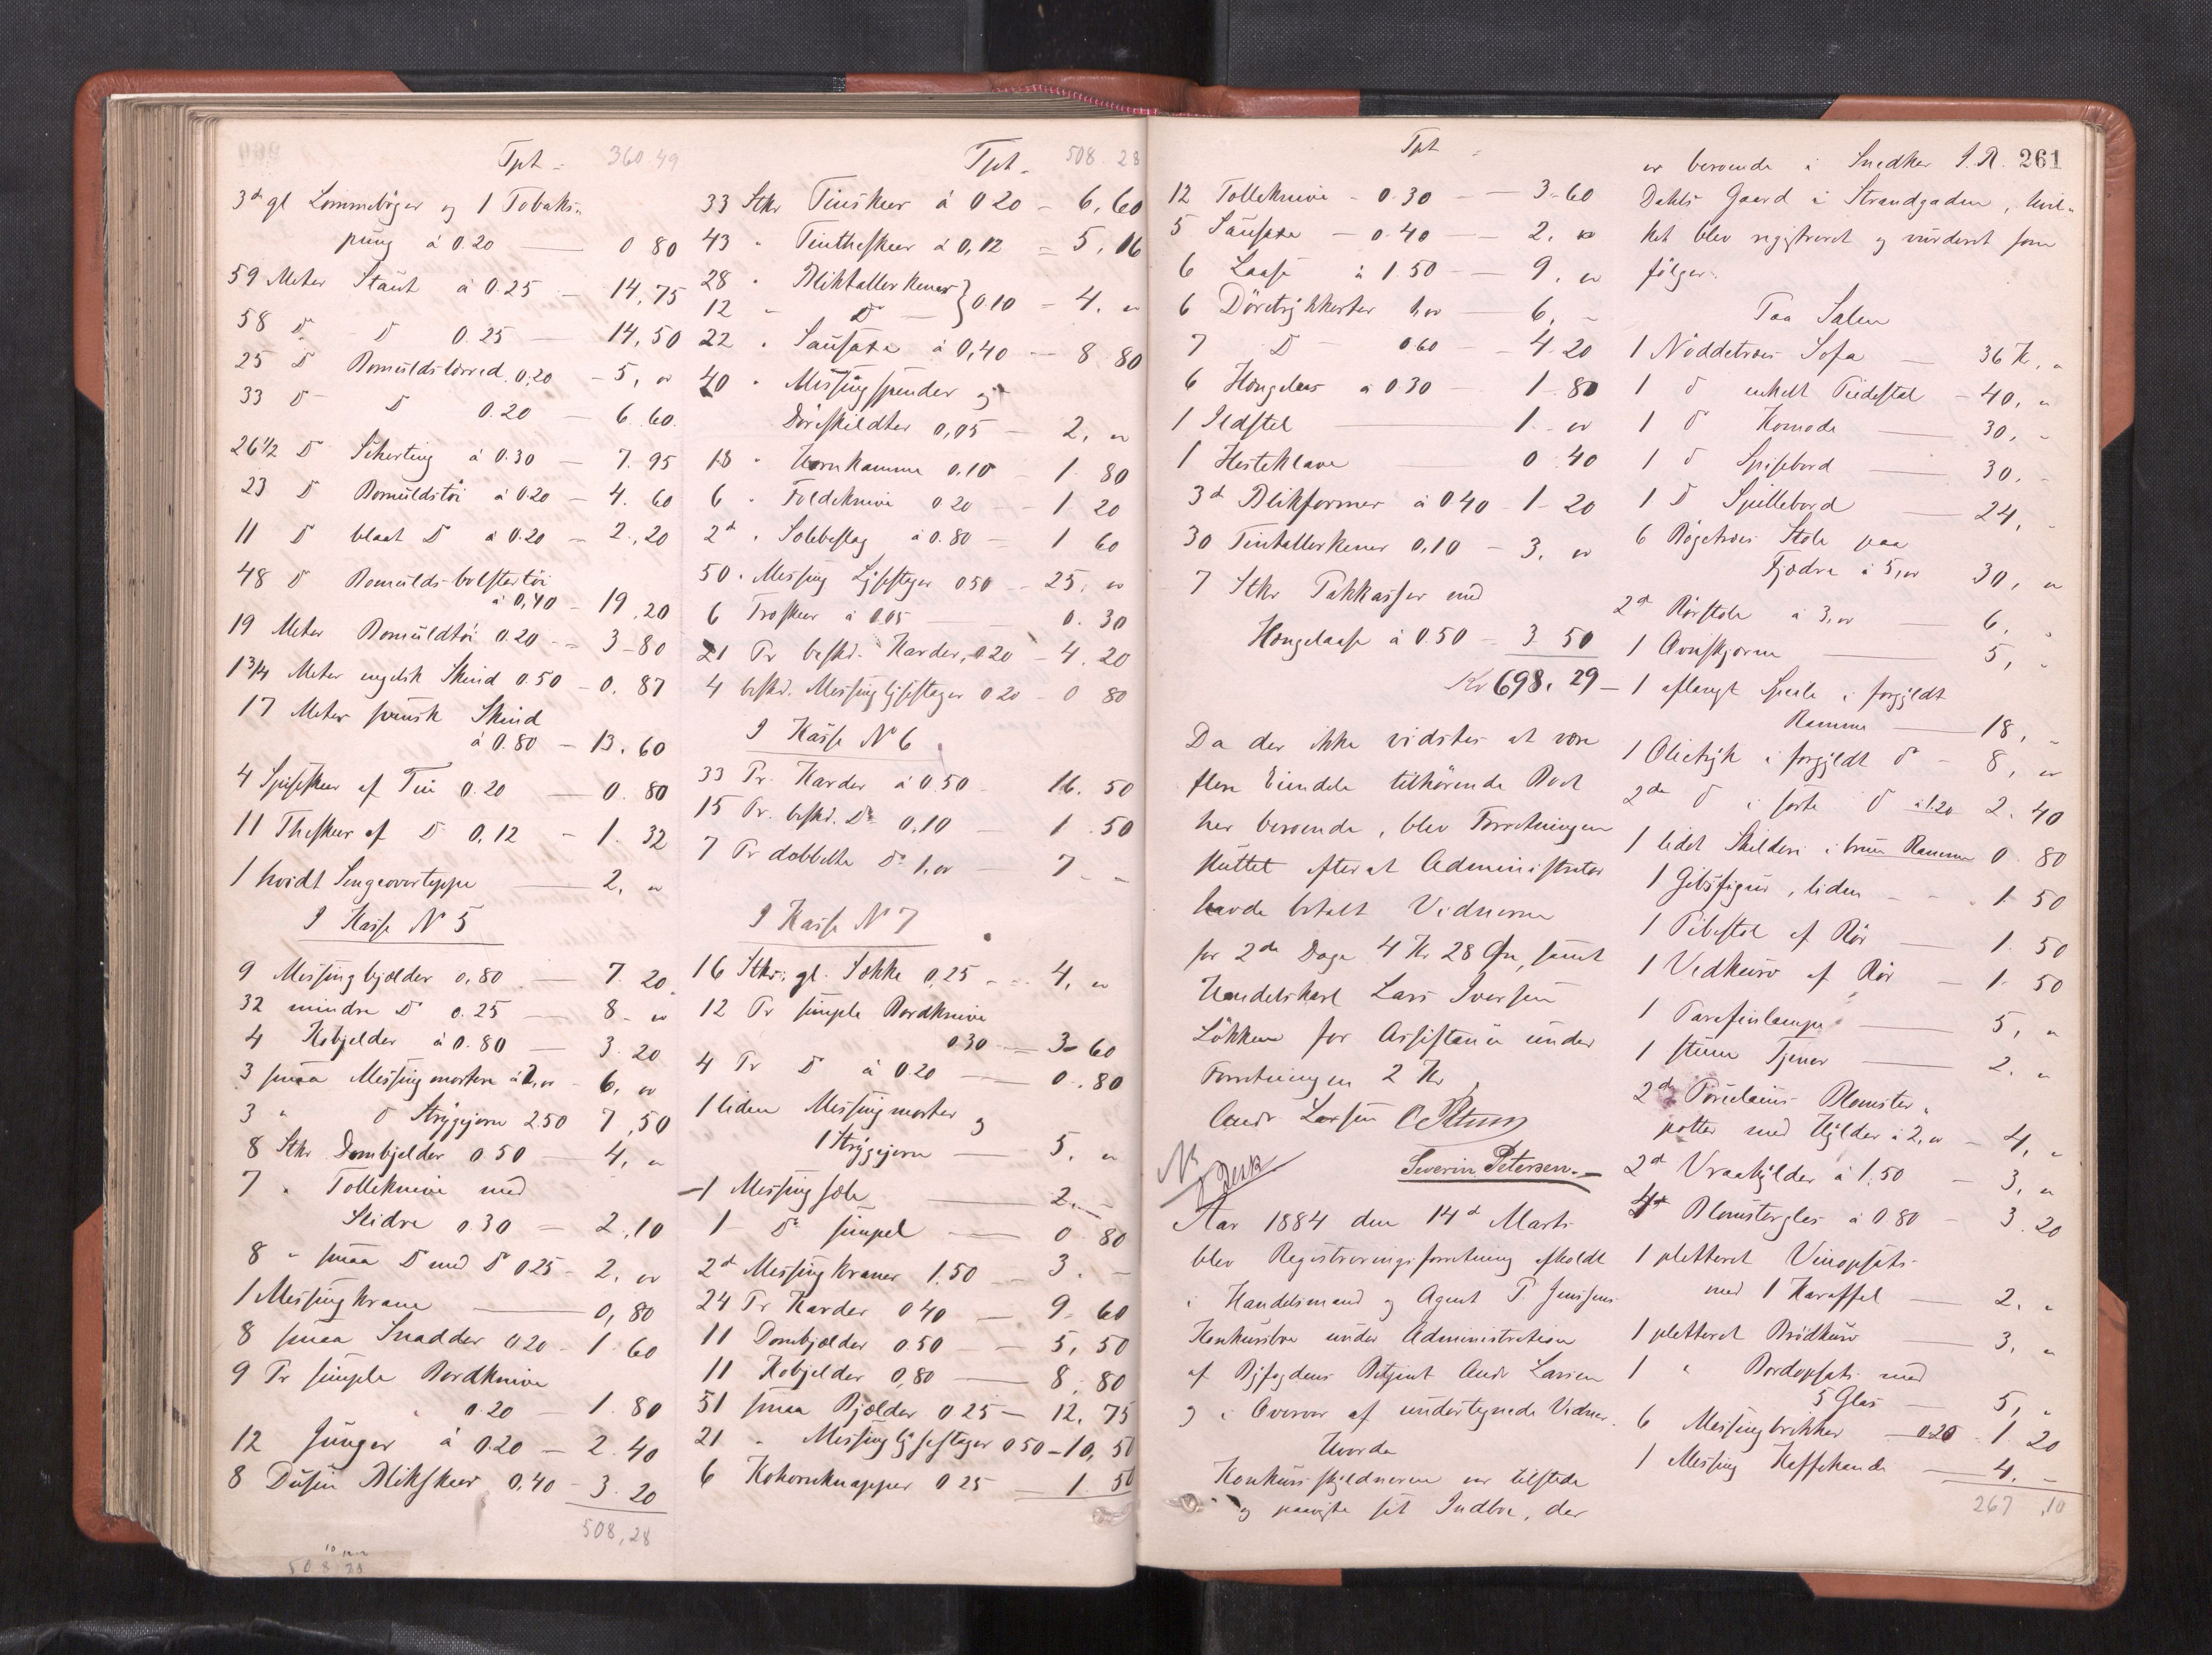 Tpt. 360.49
3de gl Lommebøger og 1 Tobaks-
pung à 0.20 — 0 80
59 Meter Staut à 0.25 — 14,75
58 D - D 0.25 — 14,50
25 D Bomuldslærred. 0,20 - 5, "
33 D - D 0.20 — 6 60.
26 1/2 D Schirting à 0.30 — 7.95
23 D Bomuldstöi à 0.20 - 4. 60
11 D blaat D à 0.20 - 2.,20
48 D Bomulds-bolstertöi
à 0,40 - 19.20
19 Meter Bomuldtöi 0.20 - 3-80
1 3/4 Meter engelsk Skind 0.50 - 0.87
17 Meter svensk Skind
à 0.80 — 13.60
4 Spiseskeer af Tin 0.20 — 0.80
11 Theskeer af D 0,12 - 1.32
1 hvidt Sengeovertæppe — 2, "
I Kasse No 5
9 Messingbjelder 0,80 — 7.20
32 mindre D 0.25 — 8 - "
4 Kobjelder à 0.80 — 3.20
3 smaa Messing mortere à 2," - 6, "
3 " D Strygejern 2.50 7,50
8 Stkr Dombjelder 0.50 — 4, "
7 " Tolleknive med
Slidre 0.30 — 2.,10
8 " smaa D med D 0.25 - 2, "
1 Messingkrane — 0,80
8 smaa Snadder 0.20 - 1.60
9 Pr simple Bordknive
0.20 — 1.80
12 Junger à 0.20 — 2.40
8 Dusin Blikskeer 0,40 - 3.20
508,28
508 28
Tpt. 508.28
33 Stkr Tinskeer à 0 20 - 6.60
43 " Tintheskeer à 0,12 = 5,16
28 " Bliktallerkener
12 " D — } 0.10 - 4, "
22 " Sausaxe à 0,40 — 8 80
40 " Messingspender og
Dörskildter 0,05 — 2, "
18 " Hornkamme 0.10 — 1.80
6 " Foldeknive 0 20 — 1 20
2de " Solebeslag à 0.80 — 1 60
50 " Messing Lysestager 0 50 - 25, "
6 Troskeer à 0.05 — 0.30
21 Pr beskd. Karder, 0 20 - 4.20
4 beskd. Messing lysestager 0 20 - 0 80
I Kasse No 6
33 Pr. Karder à 0.50 — 16.50
15 Pr. beskd. Do 0,10 — 1.50
7 Pr dobbelte Do 1," — 7 - -
I Kasse No 7
16 Stkr. gl. Sække 0,25 — 4, "
12 Pr simple Bordknive
0.30 — 3-60
4 Pr D à 0.20 — 0.80
1 liden Messingmorter og
1 Strygejern — 5, "
1 Messing sæle — 2. —
1 - Do simpel — 0.80
2de Messingkraner 1.50 — 3. —
24 Pr Karder 0 40 — 9-60
11 Dombjelder 0.50 — 5,50
11 Kobjelder 0,80 — 8,80
51 smaa Bjælder 0 25 — 12.75
21 " Messinglysestager 0 50 - 10,50
6 Kohornknapper 0 25 — 1 50
Tpt.
12 Tolleknive - 0.30 — 3-60
5 Sausaxe - 0.40 — 2. "
6 Laase à 1.50 — 9. "
6 Dörtrykkerter 1," — 6, -
7 D - 0 60 — 4-20
6 Hængelaas à 0.30 — 1-80
1 Ildstel — 1 - "
1 Hesteklave 0.40
3de Blikformer à 0.40 - 1-20
30 Tintallerkener 0,10 - 3, "
7 Stkr Pakkasser med
Hængelaase à 0.50 - 3 50
Kr 698.29
Da der ikke vidstes at være
flere Eiendele tilhørende Boet
her beroende, blev Forretningen
sluttet efter at Administrator
havde betalt Vidnerne
for 2de Dage 4 Kr 28 Øre, samt
Handelskarl Lars Iversen
Løkken for Assistance under
Forretningen 2 Kr
Andr Larsen
Severin Petersen
Aar 1884 den 14de Marts
blev Registreringsforretning afholdt
i Handelsmand og Agent P. Jensens
Konkursbo under Administration
af Byfogdens Betjent Andr Larsen
og i Overvær af undertegnede Vidner.
Hvorda
Konkursskyldneren var tilstede
og paaviste sit Indbo, der
261
er beroende i Snedker I.R.
Dahls Gaard i Strandgaden, hvil-
ket blev registreret og vurderet som
følger:
Paa Salen
1 Nöddetræs Sofa — 36 Kr. "
1 D enkelt Piedestal - 40, "
1 D Komode — 30, -
1 D Spisebord — 30, -
1 D Spillebord — 24, -
6 Bøgetræs Stole paa
Fjædre à 5," 30, "
2de Rørstole à 3," — 6, "
1 Ovnskjærm — 5, "
1 aflangt Speile i forgyldt
Ramme — 18, "
1 Olietryk i forgyldt D - 8, "
2de D i sorte D à 1.20 2.40
1 lidet Skilderi i brun Ramme 0.80
1 Gibsfigur, liden - 1.50
1 Pibestol af Rör — 1.50
1 Vedkurv af Rör - 1.50
1 Parafinlampe — 5, "
1 stum Tjener — 2. "
2de Porcelains Blomster-
potter med Hylder à 2," - 4, "
2de Vraahylder à 1.50 - 3, "
4de Blomsterglas à 0.80 - 3.20
1 pletteret Vinopsats
med 1 Karaffel — 2. "
1 pletteret Brödkurv — 3, "
1 " Bordopsats med
5 Glas — 5, "
6 Messingbrikker — 0.20 - 1.20
1 Messing Kaffekande — 4, -
267,10